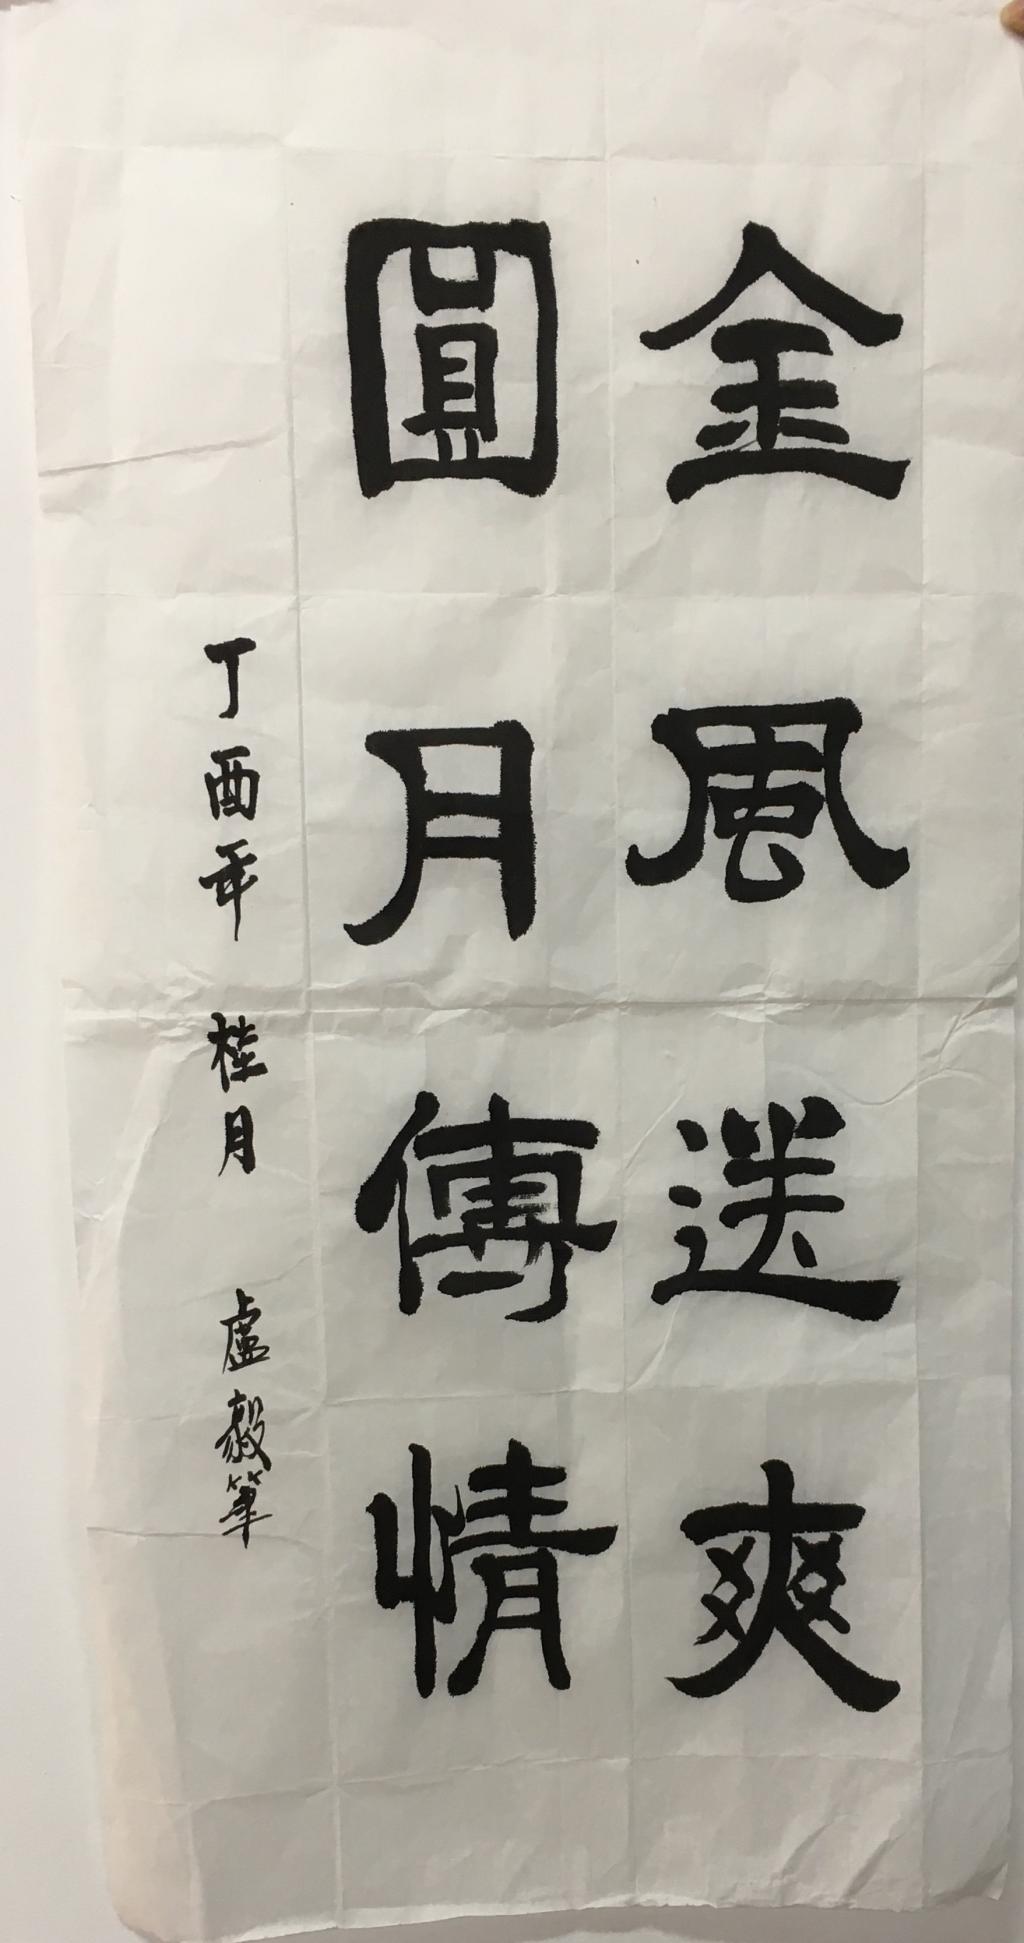 金風送爽
圓月傳情
丁酉年 桂月 盧毅筆